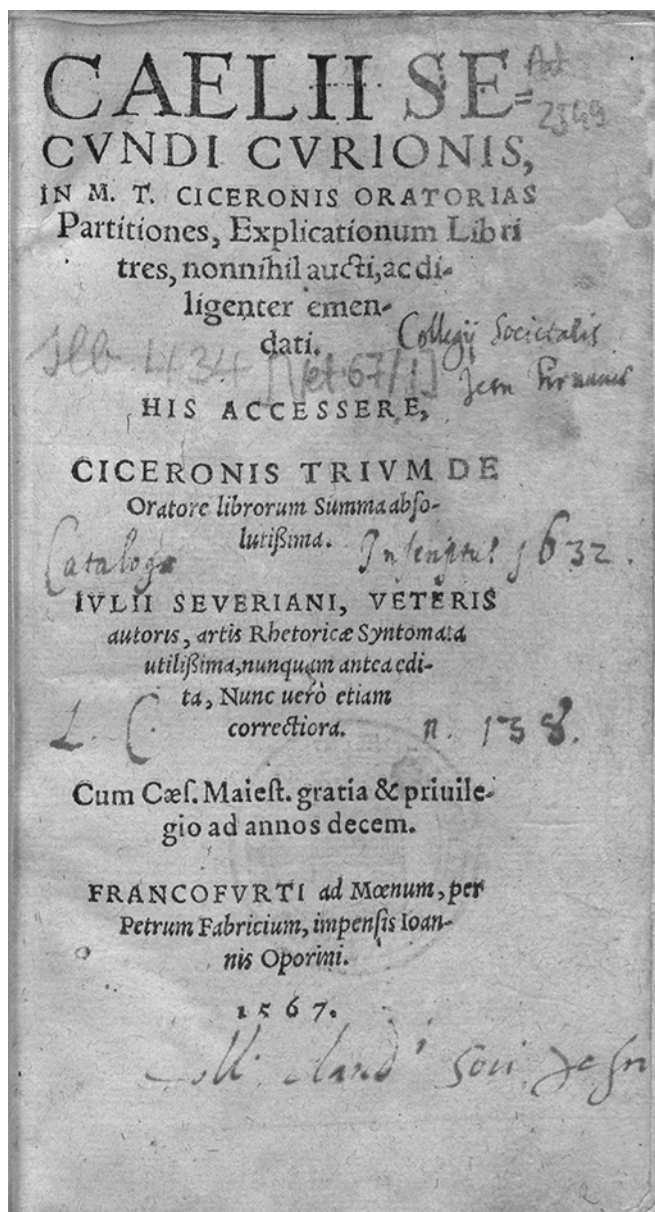 CAELII SE=
CVNDI CVRIONIS,
IN M. T. CICERONIS ORATORIAS
Partitiones, Explicationum Libri
tres, nonnihil aucti, ac di-
ligenter emen-
dati.
Collegij Societatis
434 [Vet 67/1]
HIS ACCESSERE,
CICERONIS TRIVM DE
Oratore librorum Summa abso-
lutißima.
1632.
IVLII SEVERIANI, VETERIS
autoris, artis Rhetoricæ Syntomata
utilißima, nunquam antea edi-
ta, Nunc uerò etiam
correctiora.
L. C. n. 138.
Cum Cæs. Maiest. gratia & priuile-
gio ad annos decem.
FRANCOFVRTI ad Mœnum, per
Petrum Fabricium, impensis Ioan-
nis Oporini.
1567.